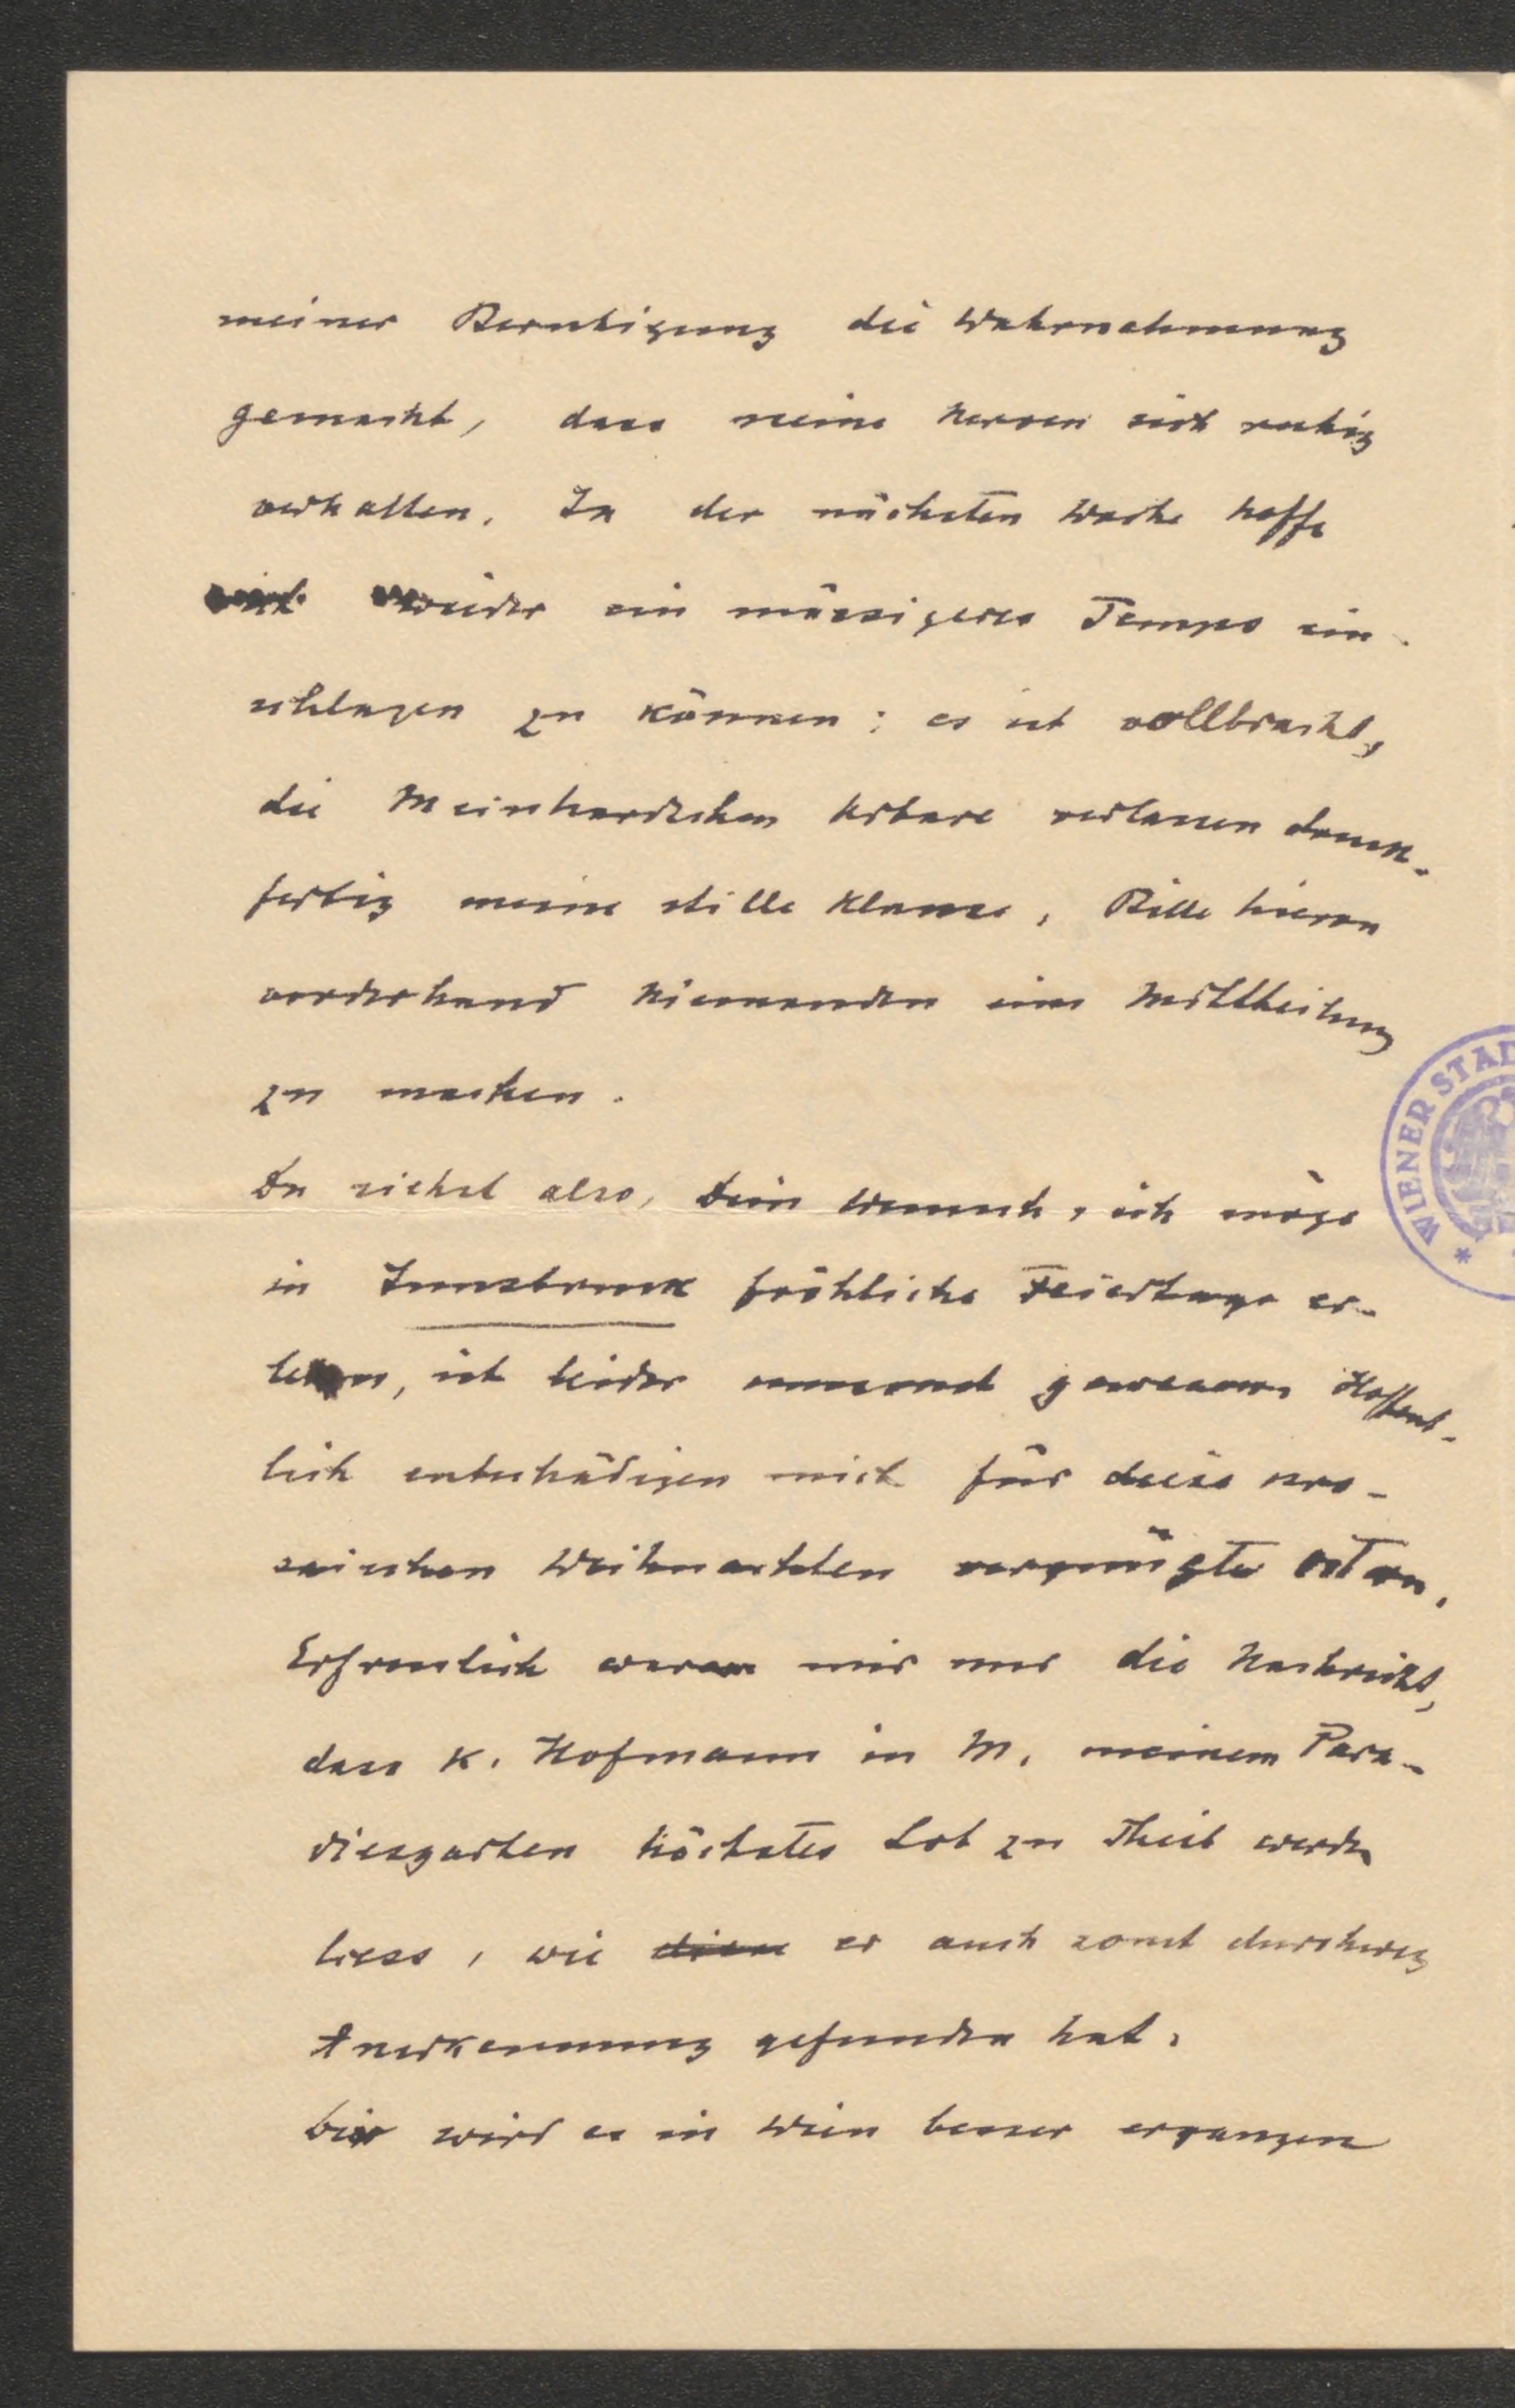 meiner Beruhigung die Wahrnehmung
gemacht, dass meine Nerven sich ruhig
verhalten. In der nächsten Woche hoffe
ich wieder ein mässigeres Tempo ein-
schlagen zu können: es ist vollbracht,
die Meinhardschen Urbare verlassen druck-
fertig meine stille Klause. Bitte hievon
vorderhand Niemanden eine Mittheilung
zu machen.
Du siehst also, Dein Wunsch, ich möge
in Innsbruck fröhliche Feiertage er-
leben, ist leider umsonst gewesen. Hoffent-
lich entschädigen mich für diese pro-
saischen Weihnachten vergnügte Ostern.
Erfreulich war mir nur die Nachricht,
dass K. Hofmann in M. meinem Para-
diesgarten höchstes Lob zu Theil werden
liess, wie er auch sonst durchweg
Anerkennung gefunden hat.
Dir wird es in Wien besser ergangen
WIENER STAD